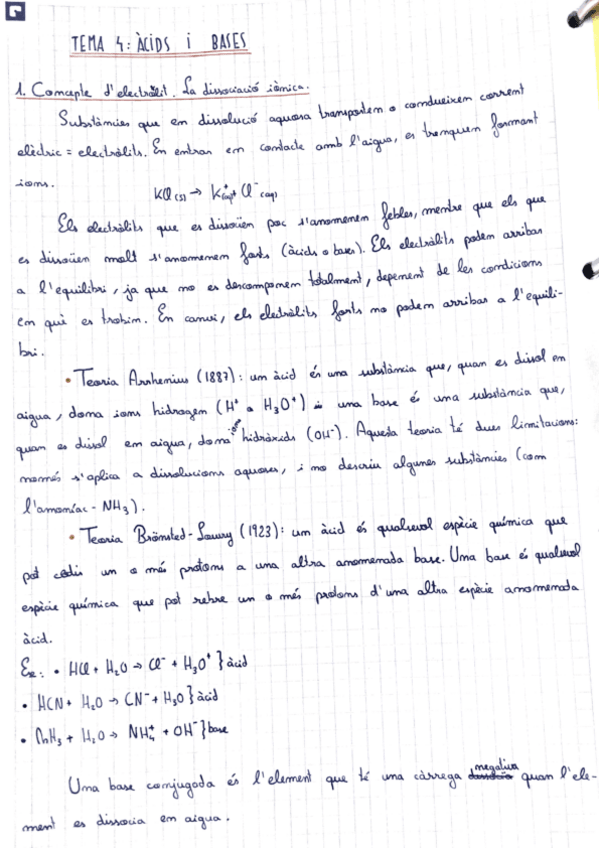 TEMA 4: ÀCIDS I BASES
1. Concepte d'electròlit. La dissociació iònica.
Substàncies que en dissolució aquosa transporten o condueixen corrent
elèctric = electròlits. En entrar en contacte amb l'aigua, es trenquen formant
ions.
KCl (s) → K⁺(aq) + Cl⁻(aq)
Els electròlits que es dissoüen poc s'anomenen febles, mentre que els que
es dissoüen molt s'anomenen forts (àcids o bases). Els electròlits podem arribar
a l'equilibri, ja que no es descomponen totalment, depenent de les condicions
en què es trobin. En canvi, els electròlits forts no podem arribar a l'equili-
bri.
• Teoria Arrhenius (1887): un àcid és una substància que, quan es dissol en
aigua, dona ions hidrogen (H⁺ o H₃O⁺) i una base és una substància que,
quan es dissol en aigua, dona ions hidròxids (OH⁻). Aquesta teoria té dues limitacions:
només s'aplica a dissolucions aquoses, i no descriu algunes substàncies (com
l'amoníac - NH₃).
• Teoria Brönsted-Lowry (1923): un àcid és qualsevol espècie química que
pot cedir un o més protons a una altra anomenada base. Una base és qualsevol
espècie química que pot rebre un o més protons d'una altra espècie anomenada
àcid.
Ex: • HCl + H₂O → Cl⁻ + H₃O⁺ } àcid
• HCN + H₂O → CN⁻ + H₃O } àcid
• NH₃ + H₂O → NH₄⁺ + OH⁻ } base
Una base conjugada és l'element que té una càrrega negativa quan l'ele-
ment es dissocia en aigua.